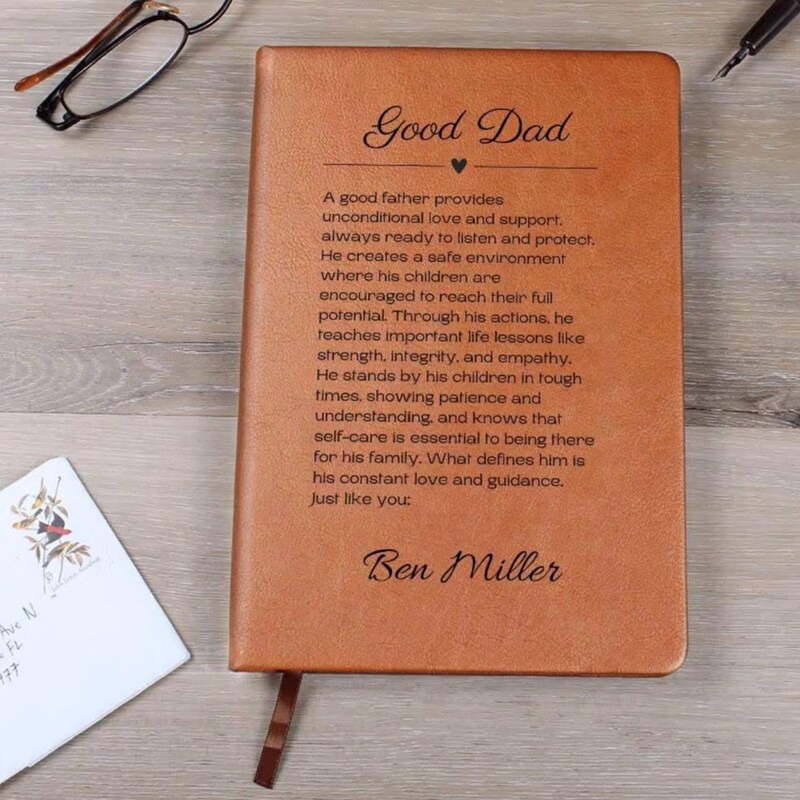 Good Dad
A good father provides
unconditional love and support,
always ready to listen and protect.
He creates a safe environment
where his children are
encouraged to reach their full
potential. Through his actions, he
teaches important life lessons like
strength, integrity, and empathy.
He stands by his children in tough
times, showing patience and
understanding, and knows that
self-care is essential to being there
for his family. What defines him is
his constant love and guidance.
Just like you:
Ben Miller
Ave N
FL
977